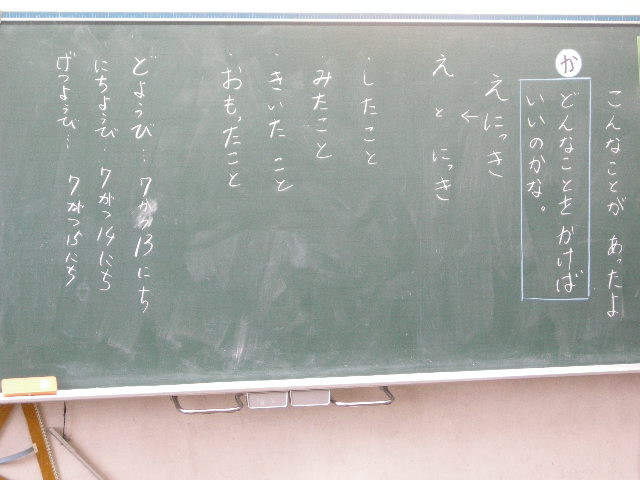 こんなことが あったよ
か
どんなことをかけば
いいのかな。
えにっき
←
え と にっき
・したこと
・みたこと
・きいたこと
・おもったこと
どようび…7がつ13にち
にちようび…7がつ14にち
げつようび…7がつ15にち